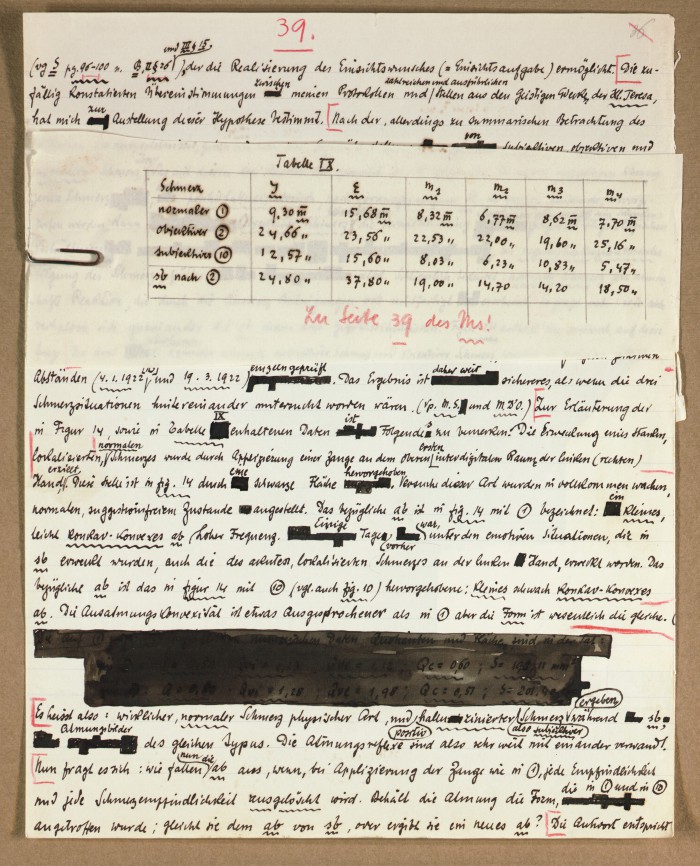 39.
und III § 15,
(vg S pg. 96-100 u. B, II § 26), der die Realisierung des Einsichtswunsches (= Einsichtsaufgabe) ermöglicht. Die zu-
zwischen zahlreichen und ausführlichen
fällig konstatierten Übereinstimmungen meinen Protokollen und Stellen aus den geistigen Werke, der Hl. Teresa,
zur
hat mich Austellung dieser Hypothese bestimmt. Nach der, allerdings zu summarischen Betrachtung des
von subjektiven objektiven und
Tabelle IX.
Schmerz J E m1 m2 m3 m4
normaler ① 9,30 m 15,68 m 8,32 m 6,77 m 8,62 m 7,70 m
objektiver ② 24,66 „ 23,56 „ 22,53 „ 22,00 „ 19,60 „ 25,16 „
subjektiver ⑩ 12,57 „ 15,60 „ 8,03 „ 6,23 „ 10,83 „ 5,47 „
sb nach ② 24,80 „ 37,80 „ 19,00 „ 14,70 14,20 18,50 „
Zu Seite 39 des Ms!
einzeln geprüft daher weit
Abständen (4.1.1922 und 19.3.1922) . Das Ergebnis ist sichereres, als wenn die drei
Schmerzsituationen hintereinander untersucht worden wären. (Vp. M.S. und M.D'O.) Zur Erläuterung der
IX
in Figur 14 sowie in Tabelle enthaltenen Daten ist Folgendes zu bemerken. Die Erweckung eines starken,
normalen ersten
lokalisierten, Schmerzes wurde durch Applizierung einer Zange an dem oberen interdigitalen Raum der linken (rechten)
erzielt, eine hervorgehoben
Hand. Diese Stelle ist in fig. 14 durch schwarze Fläche . Versuche dieser Art wurden in vollkommen wachen,
ein
normalen, suggestionsfreiem Zustande angestellt. Das bezügliche ab ist in fig. 14 mit ① bezeichnet: kleines,
Einige war,
leicht konkav-konvexes ab hoher Frequenz. Tage unter den emotiven Situationen, die in
vorher
sb erweckt wurden, auch die des akuten, lokalisierten Schmerzes an der linken Hand, erweckt worden. Das
bezügliche ab ist das in figur 14 mit ⑩ (vgl. auch fig. 10) hervorgehobene: kleines schwach konkav-konvexes
ab. Die Ausatmungskonvexität ist etwas ausgesprochener als in ① aber die Form ist wesentlich die gleiche. (
ergeben
Es heisst also: wirklicher, normaler Schmerz physischer Art, und halluzinierter Schmerz während sb,
Atmungsbilder positiv also subjektiver
des gleichen Typus. Die Atmungsreflexe sind also sehr weit mit einander verwandt.
nun die
Nun fragt es sich: wie fallen ab aus, wenn, bei Applizierung der Zange wie in ①, jede Empfindlichkeit
die in ① und in ⑩
und jede Schmerzempfindlichkeit ausgelöscht wird. Behält die Atmung die Form,
angetroffen wurde; gleicht sie dem ab von sb, oder ergibt sie ein neues ab? Die Antwort entspricht